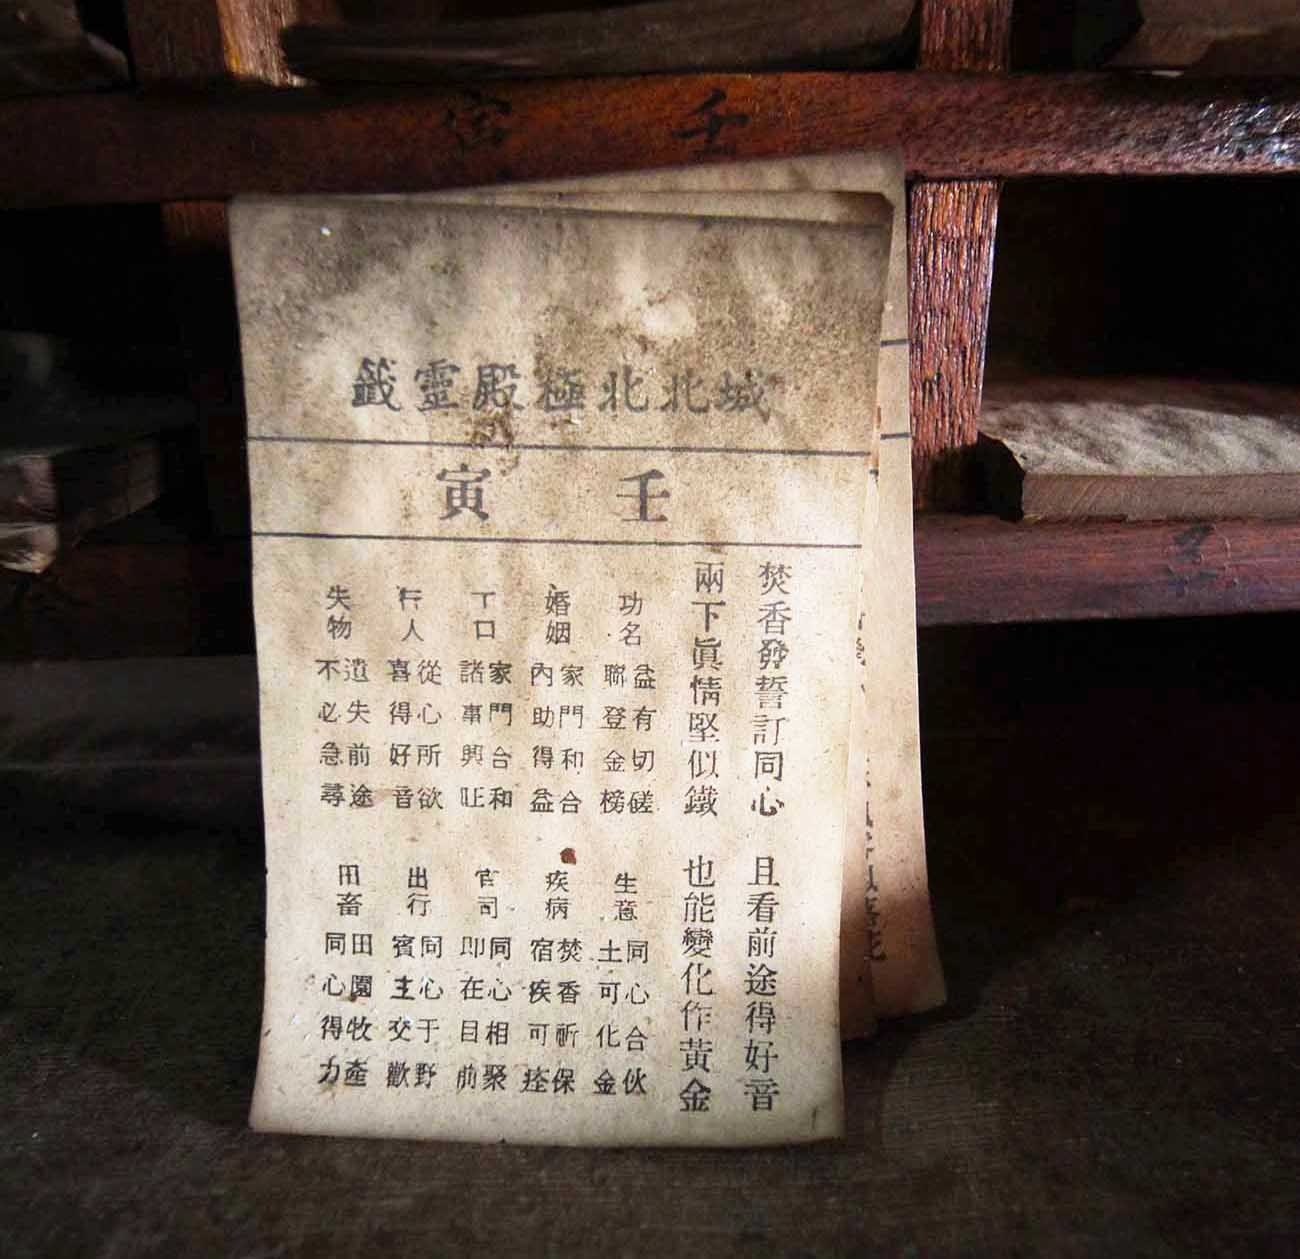 壬寅
城北北極殿靈籤
壬寅
焚香發誓訂同心 且看前途得好音
兩下眞情堅似鐵 也能變化作黃金
功名
益有切磋
聯登金榜
婚姻
家門和合
內助得益
丁口
家門合和
諸事興旺
行人
從心所欲
喜得好音
失物
遺失前途
不必急尋
生意
同心合伙
土可化金
疾病
焚香祈保
宿疾可痊
官司
同心相聚
即在目前
出行
同心于野
賓主交歡
田畜
田園牧產
同心得力